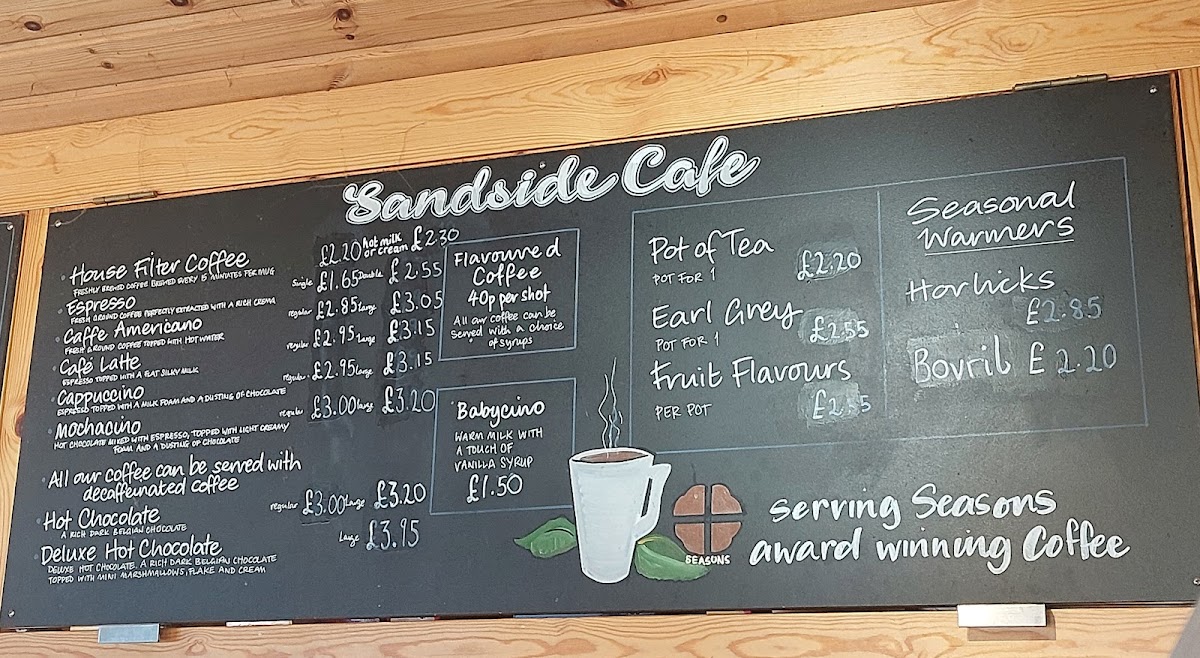 Sandside Cafe
House Filter Coffee £2.20 hot milk or cream £2.30
FRESHLY BREWED COFFEE BREWED EVERY 15 MINUTES PER MUG
Espresso Single £1.65 Double £2.55
FRESH GROUND COFFEE PERFECTLY EXTRACTED WITH A RICH CREMA
Caffe Americano regular £2.85 large £3.05
FRESH GROUND COFFEE TOPPED WITH HOT WATER
Café Latte regular £2.95 large £3.15
ESPRESSO TOPPED WITH A FLAT SILKY MILK
Cappuccino regular £2.95 large £3.15
ESPRESSO TOPPED WITH A MILK FOAM AND A DUSTING OF CHOCOLATE
Mochacino regular £3.00 large £3.20
HOT CHOCOLATE MIXED WITH ESPRESSO, TOPPED WITH LIGHT CREAMY
FOAM AND A DUSTING OF CHOCOLATE
All our coffee can be served with
decaffeinated coffee
Hot Chocolate regular £3.00 Large £3.20
A RICH DARK BELGIAN CHOCOLATE
Deluxe Hot Chocolate Large £3.95
DELUXE HOT CHOCOLATE. A RICH DARK BELGIAN CHOCOLATE
TOPPED WITH MINI MARSHMALLOWS, FLAKE AND CREAM
Flavoured
Coffee
40p per shot
All our coffee can be
served with a choice
of syrups
Babycino
WARM MILK WITH
A TOUCH OF
VANILLA SYRUP
£1.50
Pot of Tea
POT FOR 1 £2.20
Earl Grey
POT FOR 1 £2.55
Fruit Flavours
PER POT £2.55
Seasonal
Warmers
Horlicks
£2.85
Bovril £2.20
SEASONS
Serving Seasons
award winning Coffee